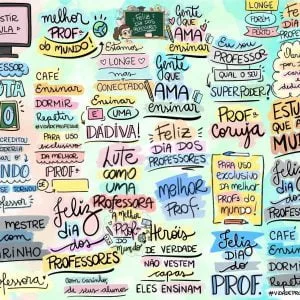 ESTIR
AULA
melhor
PROF.
do mundo!
Feliz
dia dos
PROFESSORES
Estamos
LONGE
mas
CONECTADOS
Gente
QUE
AMA
ensinar
LONGE
PORÉM
PERTO
Eu sou
PROFESSOR
QUAL O SEU
SUPERPODER?
CAFÉ
Ensinar
DORMIR
Repetir
#VIDADEPROFESSOR
PARA USO
exclusivo
DA MELHOR
PROF.
Ensinar
É UMA
DÁDIVA!
Gente
QUE
AMA
ensinar
PROF.
Coruja
Feliz
DIA DOS
PROFESSORES
LUTE
COMO UMA
PROFESSORA
melhor
Prof.
PARA USO
EXCLUSIVO
DA MELHOR
Prof. do
mundo!
MESTRE
COM
CARINHO
Feliz
dia
dos
PROFESSORES
com carinho,
de seus alunos
A melhor
Prof.
DO
Mundo
Heróis
DE VERDADE
NÃO VESTEM
capas
ELES ENSINAM
Feliz
Dia
do
PROF.
CAFÉ
Ensinar
DORMIR
Repetir